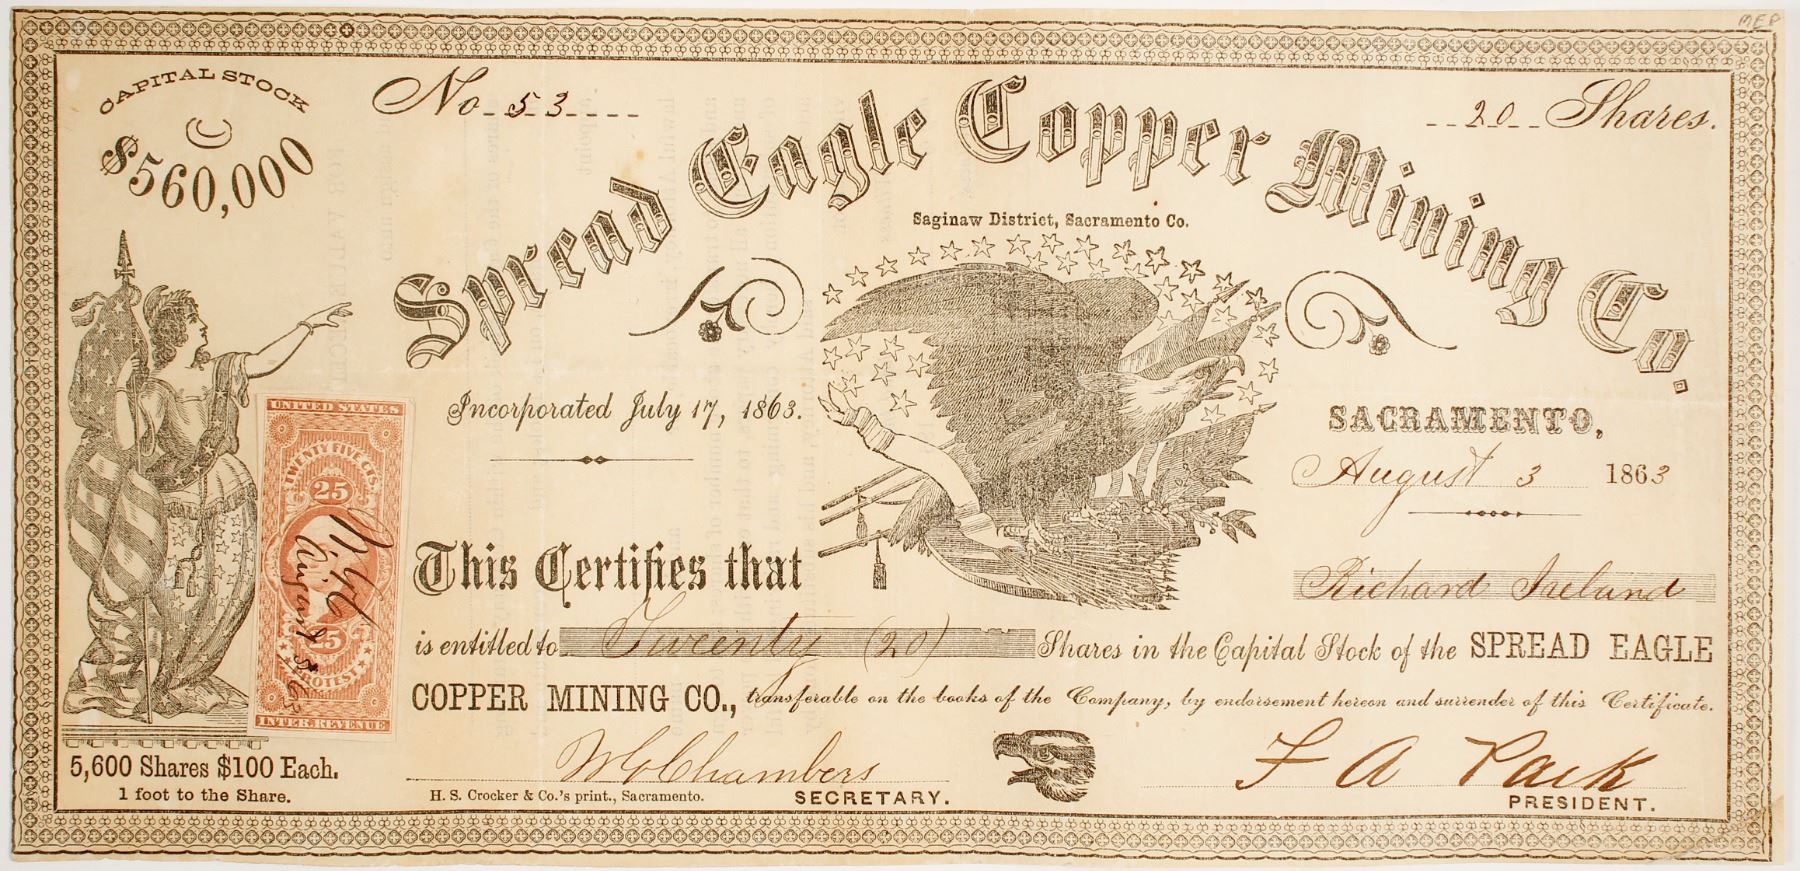 MEP
CAPITAL STOCK
$560,000
No. 53
20 Shares.
Spread Eagle Copper Mining Co.
Saginaw District, Sacramento Co.
Incorporated July 17, 1863.
SACRAMENTO,
August 3 1863
UNITED STATES
TWENTY FIVE CTS.
25
August
3 /63
25
PROTEST
INTER. REVENUE
This Certifies that Richard Ireland
is entitled to Twenty (20) Shares in the Capital Stock of the SPREAD EAGLE
COPPER MINING CO., transferable on the books of the Company, by endorsement hereon and surrender of this Certificate.
5,600 Shares $100 Each.
1 foot to the Share.
W C Chambers
SECRETARY.
H. S. Crocker & Co.'s print., Sacramento.
F A Park
PRESIDENT.